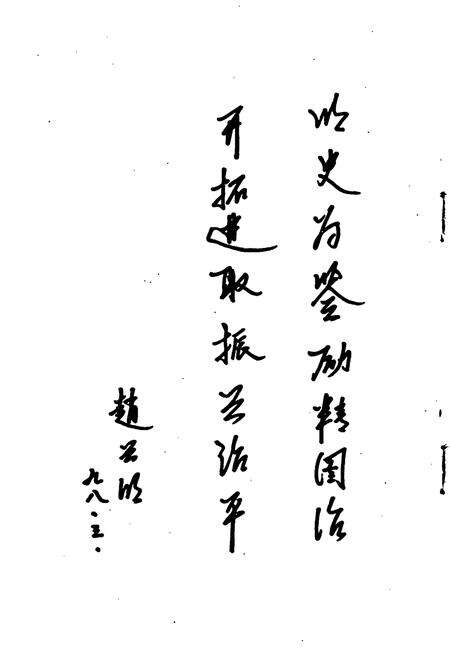 以史为鉴励精图治
开拓进取振兴治平
趙兴明
九八.三.